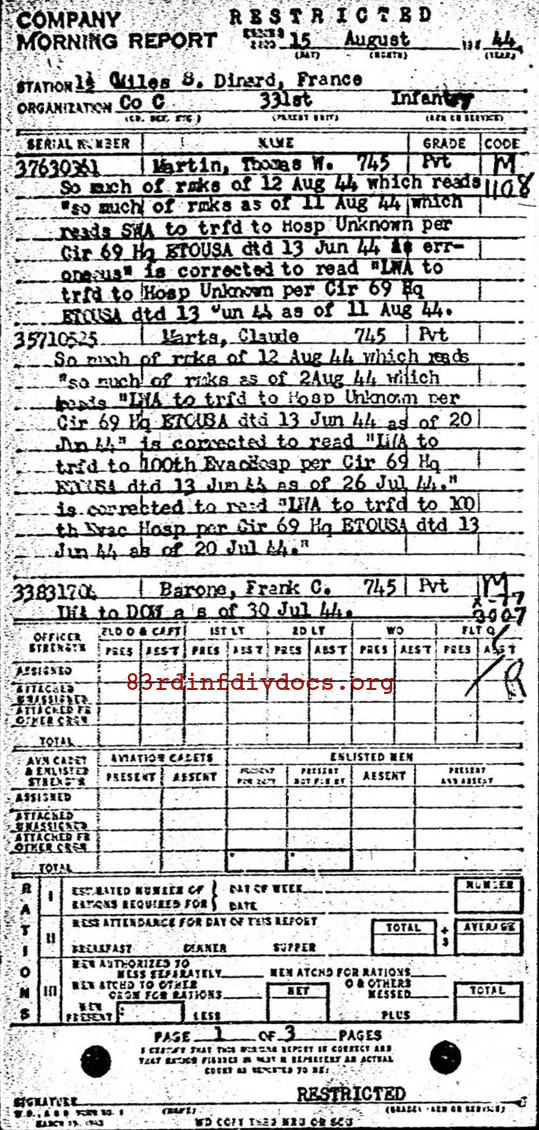 COMPANY RESTRICTED
MORNING REPORT ENDING 2400 15 August 1944
(DAY) (MONTH) (YEAR)
STATION 1½ Miles S. Dinard, France
ORGANIZATION Co C 331st Infantry
(CO. DET. ETC.) (PARENT UNIT) (ARM OR SERVICE)
SERIAL NUMBER NAME GRADE CODE
37630361 Martin, Thomas W. 745 Pvt M
So much of rmks of 12 Aug 44 which reads 1108
"so much of rmks as of 11 Aug 44 which
reads SWA to trfd to Hosp Unknown per
Cir 69 Hq ETOUSA dtd 13 Jun 44 is err-
oneous" is corrected to read "LWA to
trfd to Hosp Unknown per Cir 69 Hq
ETOUSA dtd 13 Jun 44 as of 11 Aug 44.
35710525 Marts, Claude 745 Pvt
So much of rmks of 12 Aug 44 which reads
"so much of rmks as of 2Aug 44 which
reads "LWA to trfd to Hosp Unknown per
Cir 69 Hq ETOUSA dtd 13 Jun 44 as of 20
Jun 44" is corrected to read "LWA to
trfd to 100th EvacHosp per Cir 69 Hq
ETOUSA dtd 13 Jun 44 as of 26 Jul 44."
is corrected to read "LWA to trfd to 100
th Evac Hosp per Cir 69 Hq ETOUSA dtd 13
Jun 44 as of 20 Jul 44."
33831704 Barone, Frank C. 745 Pvt M
LWA to DOW a s of 30 Jul 44. X-77
3007
OFFICER STRENGTH FLD O & CAPT 1ST LT 2D LT WO FLT O
PRES ABS'T PRES ABS'T PRES ABS'T PRES ABS'T PRES ABS'T
ASSIGNED
83rdinfdivdocs.org
ATTACHED UNASSIGNED
ATTACHED FR OTHER ORGN
TOTAL
AVN CADET & ENLISTED STRENGTH AVIATION CADETS ENLISTED MEN
PRESENT ABSENT PRESENT FOR DUTY PRESENT NOT FOR DY ABSENT PRESENT AND ABSENT
ASSIGNED
ATTACHED UNASSIGNED
ATTACHED FR OTHER ORGN
TOTAL
RATIONS
I ESTIMATED NUMBER OF RATIONS REQUIRED FOR DAY OF WEEK DATE NUMBER
II MESS ATTENDANCE FOR DAY OF THIS REPORT TOTAL ÷ 3 AVERAGE
BREAKFAST DINNER SUPPER
III MEN AUTHORIZED TO MESS SEPARATELY MEN ATCHD FOR RATIONS
MEN ATCHD TO OTHER ORGN FOR RATIONS NET O & OTHERS MESSED TOTAL
MEN PRESENT LESS PLUS
PAGE 1 OF 3 PAGES
I CERTIFY THAT THIS MORNING REPORT IS CORRECT AND
THAT RATION FIGURES IN PART III REPRESENT AN ACTUAL
COUNT AS REPORTED TO ME:
RESTRICTED
SIGNATURE
W.D., A.G.O. FORM NO. 1 (NAME) (GRADE) (ARM OR SERVICE)
MARCH 19, 1943 WD COPY THRU MRU OR SCU